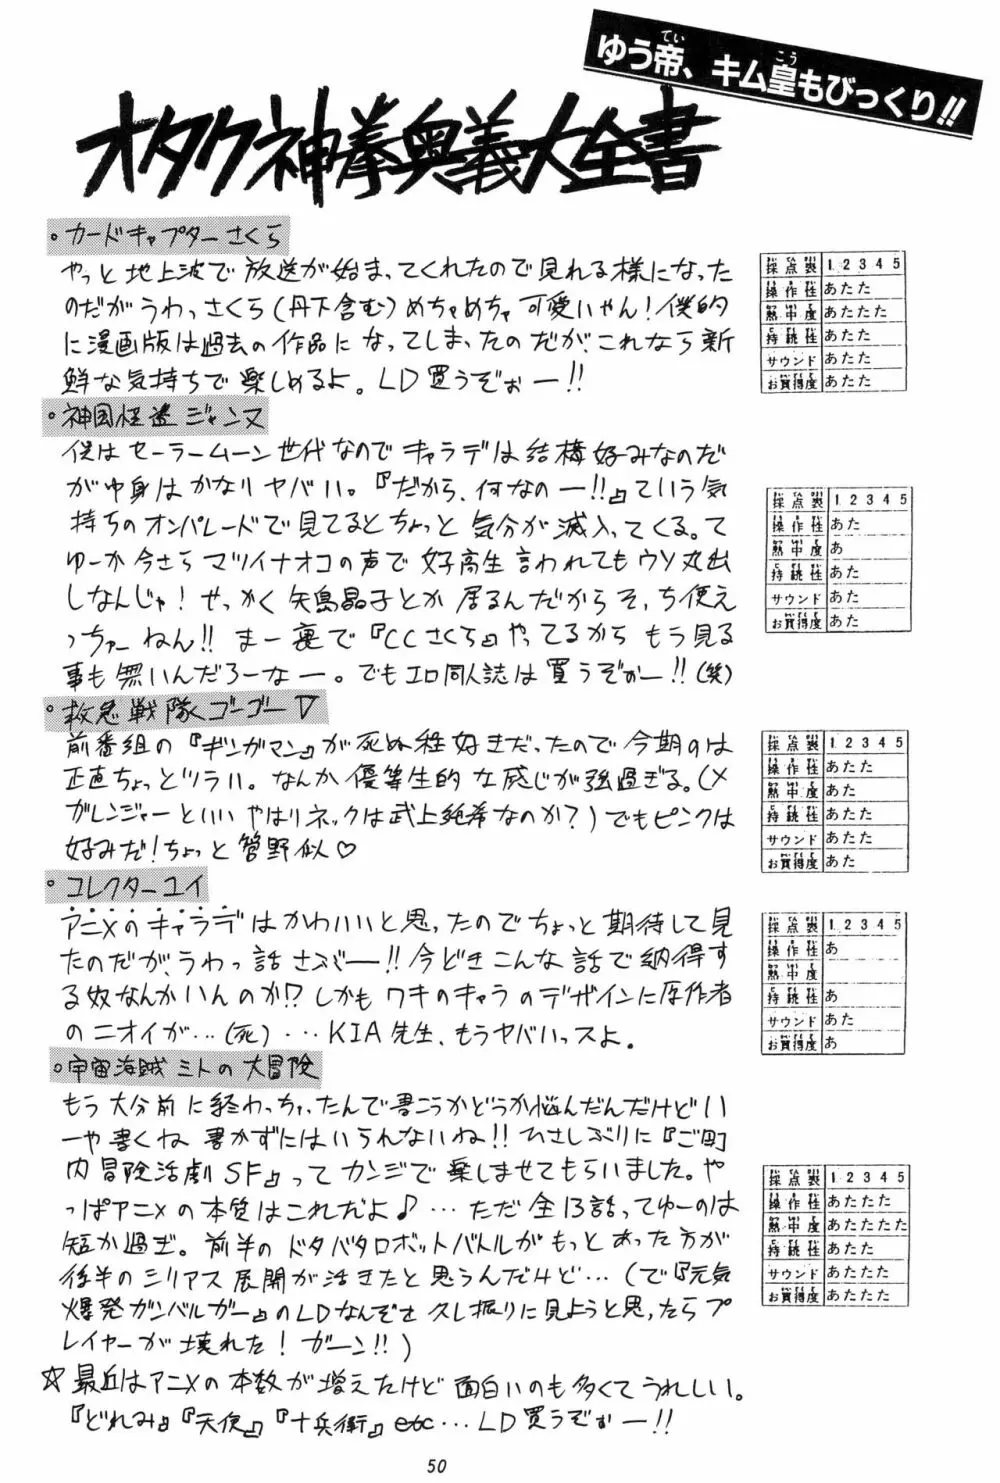 ゆう帝、キム皇もびっくり!!
オタク神拳奥義大全書
。カードキャプターさくら
やっと地上波で放送が始まってくれたので見れる様になった
のだがうわっさくら(丹下含む)めちゃめちゃ可愛いやん!僕的
に漫画版は過去の作品になってしまったのだが、これなら新
鮮な気持ちで楽しめるよ。LD買うぞぉー!!
採点表 1 2 3 4 5
操作性 あたた
熱中度 あたたた
持続性 あたた
サウンド あたた
お買得度 あたた
。神風怪盗ジャンヌ
僕はセーラームーン世代なのでキャラデは結構好みなのだ
が中身はかなりヤバい。『だから、何なのー!!』ていう気
持ちのオンパレードで見てるとちょっと気分が滅入ってくる。て
ゆーか今さらマツイナオコの声で女子高生言われてもウソ丸出
しなんじゃ!せっかく矢島晶子とか居るんだからそっち使え
っちゃーねん!!まー裏で『CCさくら』やってるからもう見る
事も無いんだろーなー。でもエロ同人誌は買うぞぉー!!(笑)
採点表 1 2 3 4 5
操作性 あた
熱中度 あ
持続性 あた
サウンド あた
お買得度 あた
。救急戦隊ゴーゴーV
前番組の『ギンガマン』が死ぬ程好きだったので今期のは
正直ちょっとツライ。なんか優等生的な感じが強過ぎる。(メ
ガレンジャーといいやはりネックは武上純希なのか?)でもピンクは
好みだ!ちょっと管野似♡
採点表 1 2 3 4 5
操作性 あたた
熱中度 あた
持続性 あたた
サウンド あたた
お買得度 あた
。コレクターユイ
アニメのキャラデはかわいいと思ったのでちょっと期待して見
たのだが、うわっ話さぶー!!今どきこんな話で納得す
る奴なんかいんのか!?しかもワキのキャラのデザインに原作者
のニオイが…(死)…KIA先生、もうヤバいっスよ。
採点表 1 2 3 4 5
操作性 あ
熱中度
持続性 あ
サウンド あた
お買得度 あ
。宇宙海賊ミトの大冒険
もう大分前に終わっちゃったんで書こうかどうか悩んだんだけどい
ーや書くね書かずにはいられないね!!ひさしぶりに『ご町
内冒険活劇SF』ってカンジで楽しませてもらいました。や
っぱアニメの本質はこれだよ♪…ただ全13話ってゆーのは
短か過ぎ。前半のドタバタロボットバトルがもっとあった方が
後半のシリアス展開が活きたと思うんだけど…(で『元気
爆発ガンバルガー』のLDなんぞを久し振りに見ようと思ったらプ
レイヤーが壊れた!ガーン!!)
採点表 1 2 3 4 5
操作性 あたたた
熱中度 あたたたた
持続性 あたた
サウンド あたたた
お買得度 あたたた
☆最近はアニメの本数が増えたけど面白いのも多くてうれしい。
『どれみ』『天使』『十兵衛』etc…LD買うぞぉー!!
50